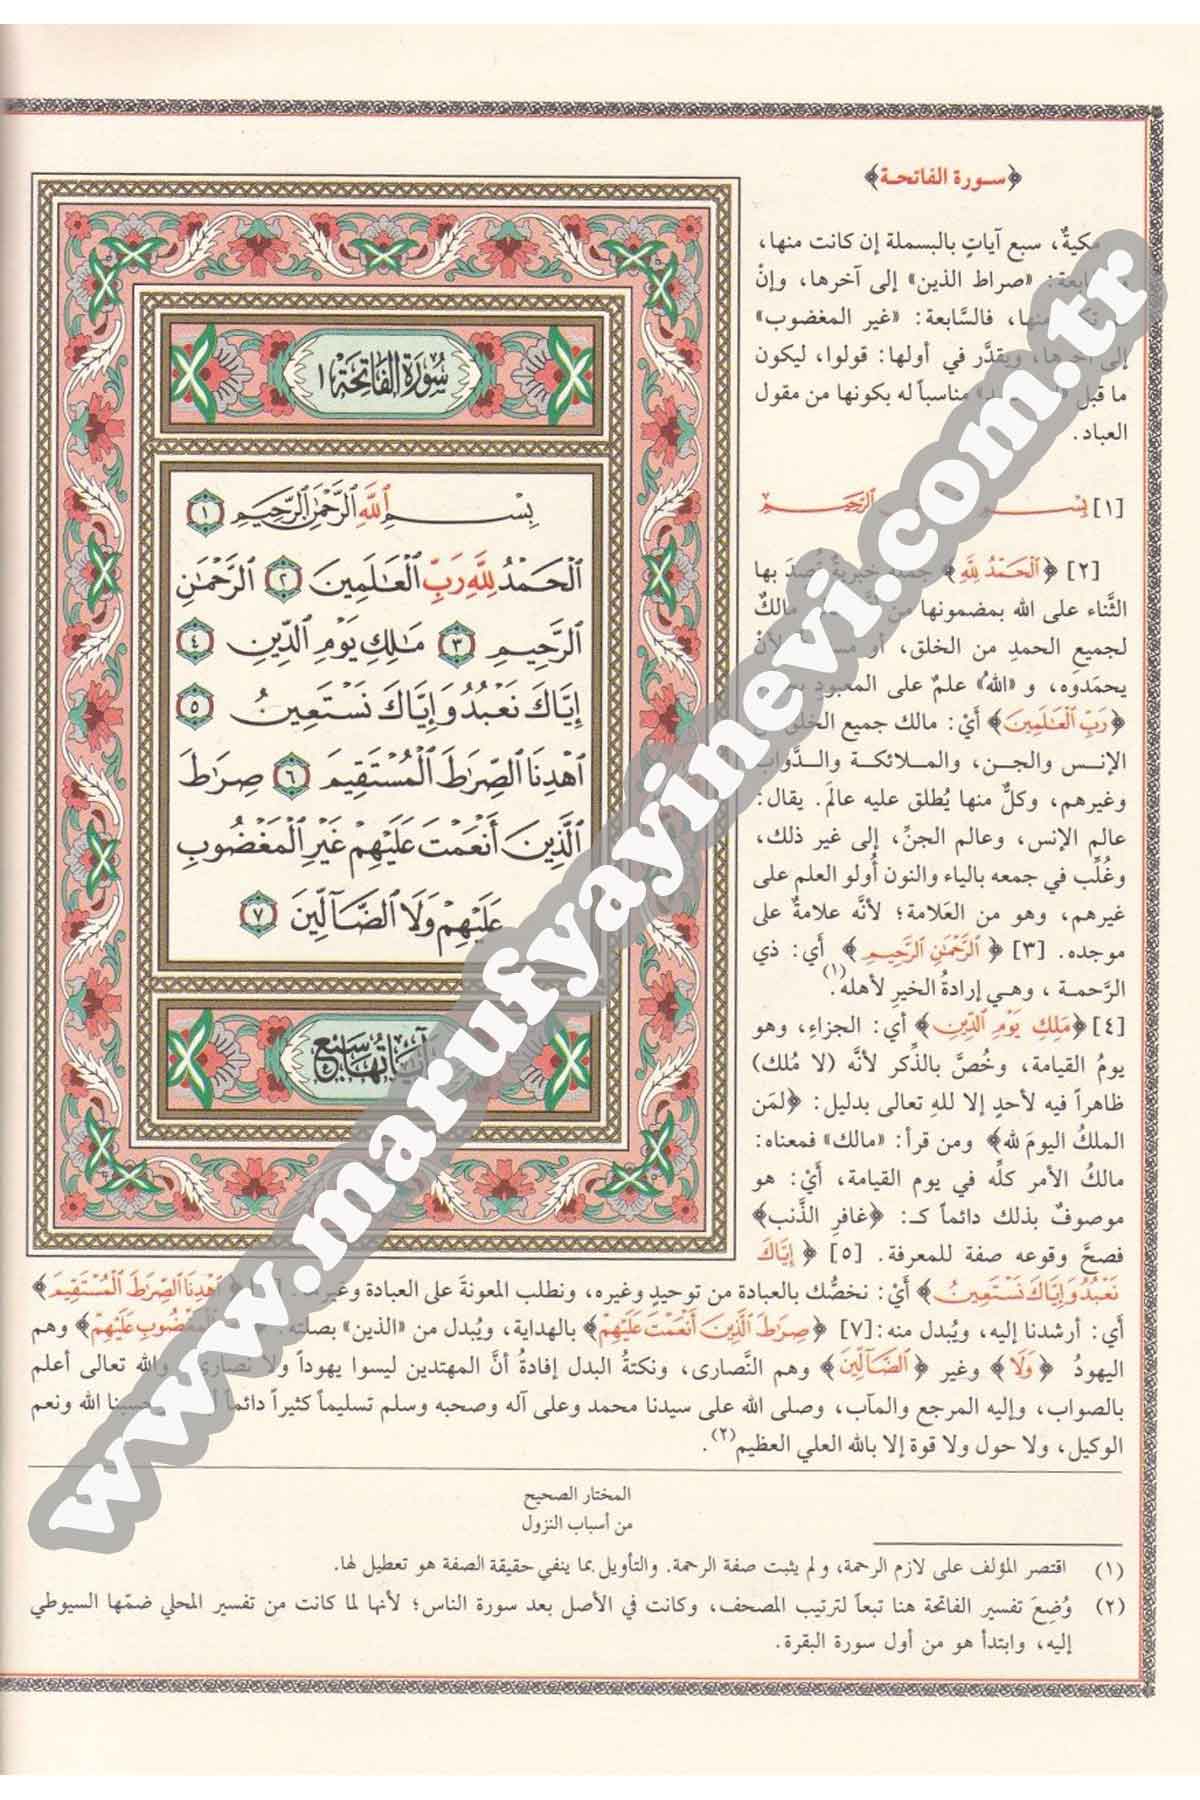 ﴿سـورة الفاتحـة﴾
مكيةٌ، سبع آياتٍ بالبسملة إن كانت منها،
«صراط الذين» إلى آخرها، وإنْ
فالسَّابعة: «غير المغضوب»
ويقدَّر في أولها: قولوا، ليكون
ما قبل مناسباً له بكونها من مقول
العباد.
[١] بِسْمِ الرَّحِيمِ
[٢] ﴿الْحَمْدُ لِلَّهِ﴾ جملة خبرية قُصدَ بها
الثَّناء على الله بمضمونها من مالكٌ
لجميعِ الحمدِ من الخلق، أو لأنْ
يحمَدوه، و «اللهُ» علمٌ على المعبود
﴿رَبِّ الْعَالَمِينَ﴾ أيْ: مالك جميع الخلق
الإنـس والجـن، والمـلائكـة والـدَّواب
وغيرهم، وكلٌّ منها يُطلق عليه عالَم. يقال:
عالم الإنس، وعالم الجنِّ، إلى غير ذلك،
وغُلِّب في جمعه بالياء والنون أُولو العلم على
غيرهم، وهو من العَلامة؛ لأنَّه علامةٌ على
موجده. [٣] ﴿الرَّحْمَٰنِ الرَّحِيمِ﴾ أَي: ذي
الرَّحمـة ، وهـي إرادةُ الخيرِ لأهله(١).
[٤] ﴿مَلِكِ يَوْمِ الدِّينِ﴾ أي: الجزاءِ، وهو
يومُ القيامة، وخُصَّ بالذِّكر لأنَّه (لا مُلك)
ظاهراً فيه لأحدٍ إلا للهِ تعالى بدليل: ﴿لمَن
الملكُ اليومَ لله﴾ ومن قرأ: «مالك» فمعناه:
مالكُ الأمر كلِّه في يوم القيامة، أيْ: هو
موصوفٌ بذلك دائماً كـ: ﴿غافرِ الذَّنب﴾
فصحَّ وقوعه صفة للمعرفة. [٥] ﴿إِيَّاكَ
نَعْبُدُ وَإِيَّاكَ نَسْتَعِينُ﴾ أيْ: نخصُّك بالعبادة من توحيدٍ وغيره، ونطلب المعونةَ على العبادة وغيرها. ﴿اهْدِنَا الصِّرَاطَ الْمُسْتَقِيمَ﴾
أَي: أرشدنا إليه، ويُبدل منه: [٧] ﴿صِرَاطَ الَّذِينَ أَنْعَمْتَ عَلَيْهِمْ﴾ بالهداية، ويُبدل من «الذين» بصلته: الْمَغْضُوبِ عَلَيْهِمْ﴾ وهم
اليهودُ ﴿وَلَا﴾ وغير ﴿الضَّالِّينَ﴾ وهم النَّصارى، ونكتةُ البدل إفادةُ أنَّ المهتدين ليسوا يهوداً ولا نصارى والله تعالى أعلم
بالصواب، وإليه المرجع والمآب، وصلى الله على سيدنا محمد وعلى آله وصحبه وسلم تسليماً كثيراً دائماً حسبنا الله ونعم
الوكيل، ولا حول ولا قوة إلا بالله العلي العظيم(٢).
سُورَةُ الفَاتِحَةِ ١
بِسْمِ اللَّهِ الرَّحْمَٰنِ الرَّحِيمِ ١
الْحَمْدُ لِلَّهِ رَبِّ الْعَالَمِينَ ٢ الرَّحْمَٰنِ
الرَّحِيمِ ٣ مَالِكِ يَوْمِ الدِّينِ ٤
إِيَّاكَ نَعْبُدُ وَإِيَّاكَ نَسْتَعِينُ ٥
اهْدِنَا الصِّرَاطَ الْمُسْتَقِيمَ ٦ صِرَاطَ
الَّذِينَ أَنْعَمْتَ عَلَيْهِمْ غَيْرِ الْمَغْضُوبِ
عَلَيْهِمْ وَلَا الضَّالِّينَ ٧
آيَاتُهَا سَبْعٌ
المختار الصحيح
من أسباب النزول
(١) اقتصر المؤلف على لازم الرحمة، ولم يثبت صفة الرحمة. والتأويل بما ينفي حقيقة الصفة هو تعطيل لها.
(٢) وُضِعَ تفسير الفاتحة هنا تبعاً لترتيب المصحف، وكانت في الأصل بعد سورة الناس؛ لأنها لما كانت من تفسير المحلي ضمّها السيوطي
إليه، وابتدأ هو من أول سورة البقرة.
www.marufyayinevi.com.tr